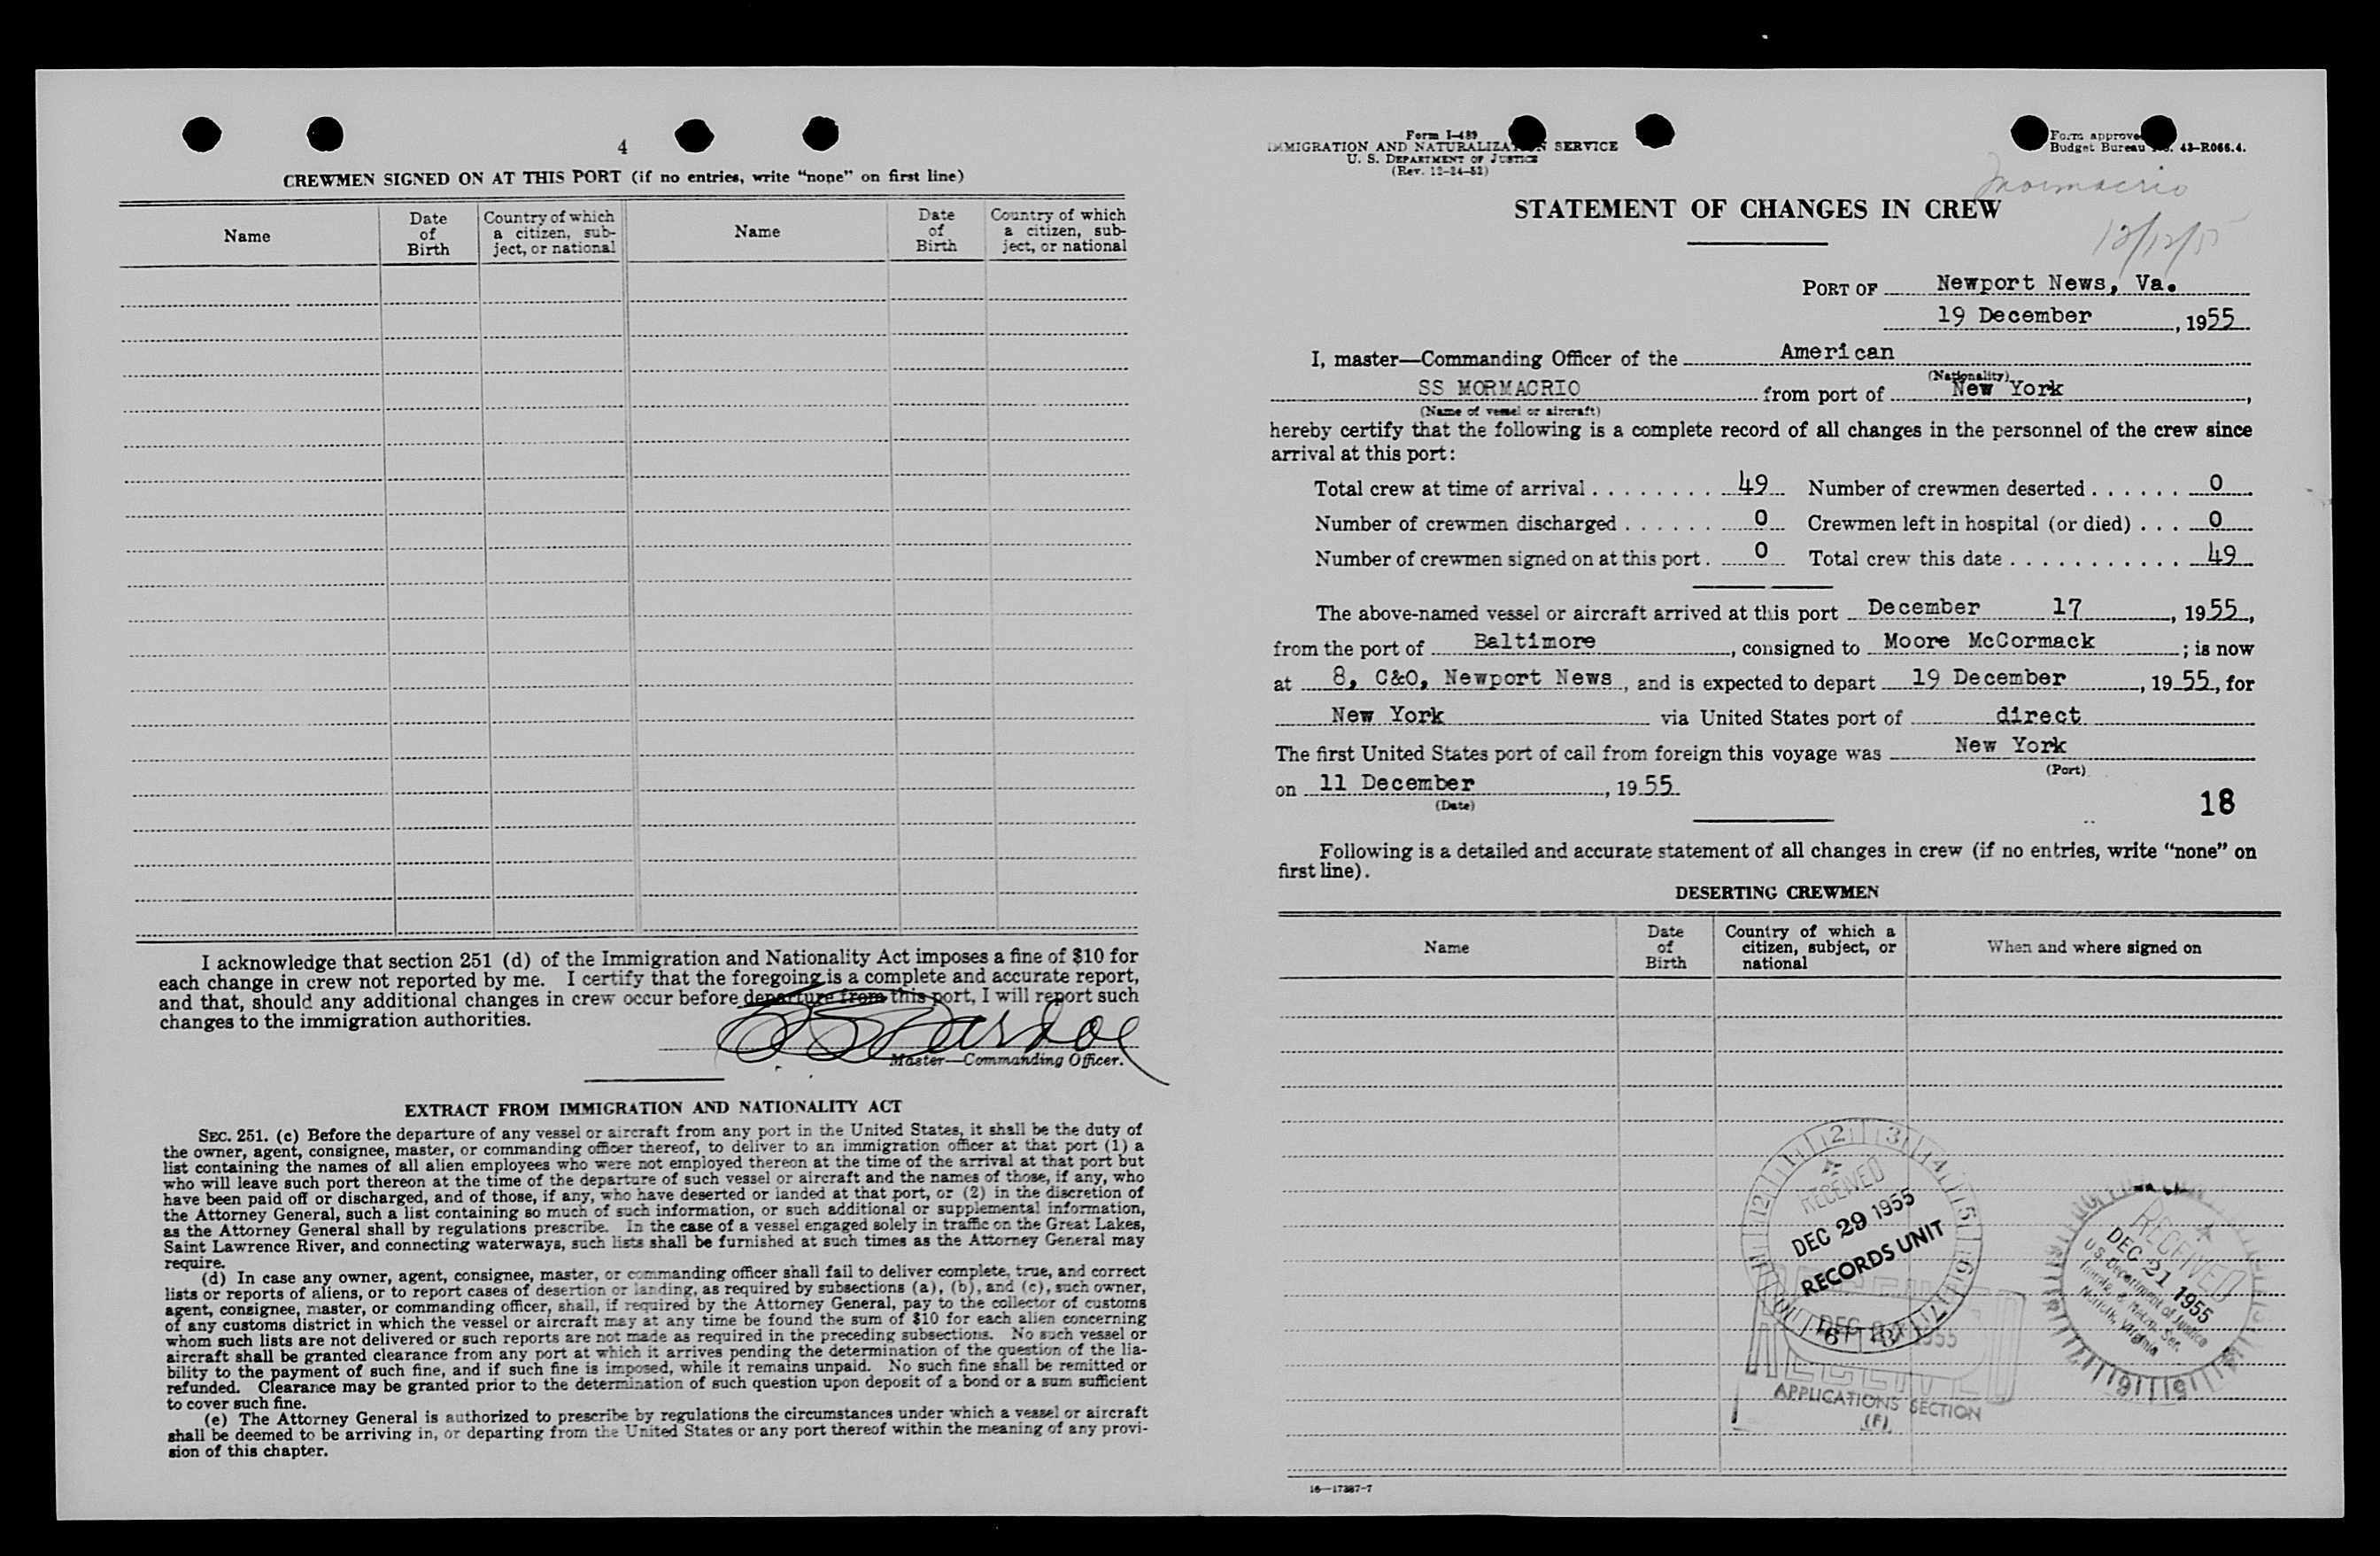 4
CREWMEN SIGNED ON AT THIS PORT (if no entries, write “none” on first line)
Name
Date of Birth
Country of which a citizen, subject, or national
Name
Date of Birth
Country of which a citizen, subject, or national
I acknowledge that section 251 (d) of the Immigration and Nationality Act imposes a fine of $10 for
each change in crew not reported by me. I certify that the foregoing is a complete and accurate report,
and that, should any additional changes in crew occur before departure from this port, I will report such
changes to the immigration authorities.
Master—Commanding Officer.
EXTRACT FROM IMMIGRATION AND NATIONALITY ACT
SEC. 251. (c) Before the departure of any vessel or aircraft from any port in the United States, it shall be the duty of
the owner, agent, consignee, master, or commanding officer thereof, to deliver to an immigration officer at that port (1) a
list containing the names of all alien employees who were not employed thereon at the time of the arrival at that port but
who will leave such port thereon at the time of the departure of such vessel or aircraft and the names of those, if any, who
have been paid off or discharged, and of those, if any, who have deserted or landed at that port, or (2) in the discretion of
the Attorney General, such a list containing so much of such information, or such additional or supplemental information,
as the Attorney General shall by regulations prescribe. In the case of a vessel engaged solely in traffic on the Great Lakes,
Saint Lawrence River, and connecting waterways, such lists shall be furnished at such times as the Attorney General may
require.
(d) In case any owner, agent, consignee, master, or commanding officer shall fail to deliver complete, true, and correct
lists or reports of aliens, or to report cases of desertion or landing, as required by subsections (a), (b), and (c), such owner,
agent, consignee, master, or commanding officer, shall, if required by the Attorney General, pay to the collector of customs
of any customs district in which the vessel or aircraft may at any time be found the sum of $10 for each alien concerning
whom such lists are not delivered or such reports are not made as required in the preceding subsections. No such vessel or
aircraft shall be granted clearance from any port at which it arrives pending the determination of the question of the lia-
bility to the payment of such fine, and if such fine is imposed, while it remains unpaid. No such fine shall be remitted or
refunded. Clearance may be granted prior to the determination of such question upon deposit of a bond or a sum sufficient
to cover such fine.
(e) The Attorney General is authorized to prescribe by regulations the circumstances under which a vessel or aircraft
shall be deemed to be arriving in, or departing from the United States or any port thereof within the meaning of any provi-
sion of this chapter.
Form I-489
IMMIGRATION AND NATURALIZATION SERVICE
U. S. DEPARTMENT OF JUSTICE
(Rev. 12-24-52)
Form approved
Budget Bureau No. 43-R066.4.
Mormacrio
12/12/55
STATEMENT OF CHANGES IN CREW
PORT OF Newport News, Va.
19 December, 1955
I, master—Commanding Officer of the American
(Nationality)
SS MORMACRIO from port of New York,
(Name of vessel or aircraft)
hereby certify that the following is a complete record of all changes in the personnel of the crew since
arrival at this port:
Total crew at time of arrival 49 Number of crewmen deserted 0
Number of crewmen discharged 0 Crewmen left in hospital (or died) 0
Number of crewmen signed on at this port 0 Total crew this date 49
The above-named vessel or aircraft arrived at this port December 17, 1955,
from the port of Baltimore, consigned to Moore McCormack; is now
at 8, C&O, Newport News, and is expected to depart 19 December, 1955, for
New York via United States port of direct
The first United States port of call from foreign this voyage was New York
(Port)
on 11 December, 1955
(Date)
18
Following is a detailed and accurate statement of all changes in crew (if no entries, write “none” on
first line).
DESERTING CREWMEN
Name
Date of Birth
Country of which a citizen, subject, or national
When and where signed on
RECEIVED
DEC 29 1955
RECORDS UNIT
APPLICATIONS SECTION
(F)
RECEIVED
DEC 21 1955
U S. Department of Justice
Immig. & Natzn. Ser.
Norfolk, Virginia
16—17387-7